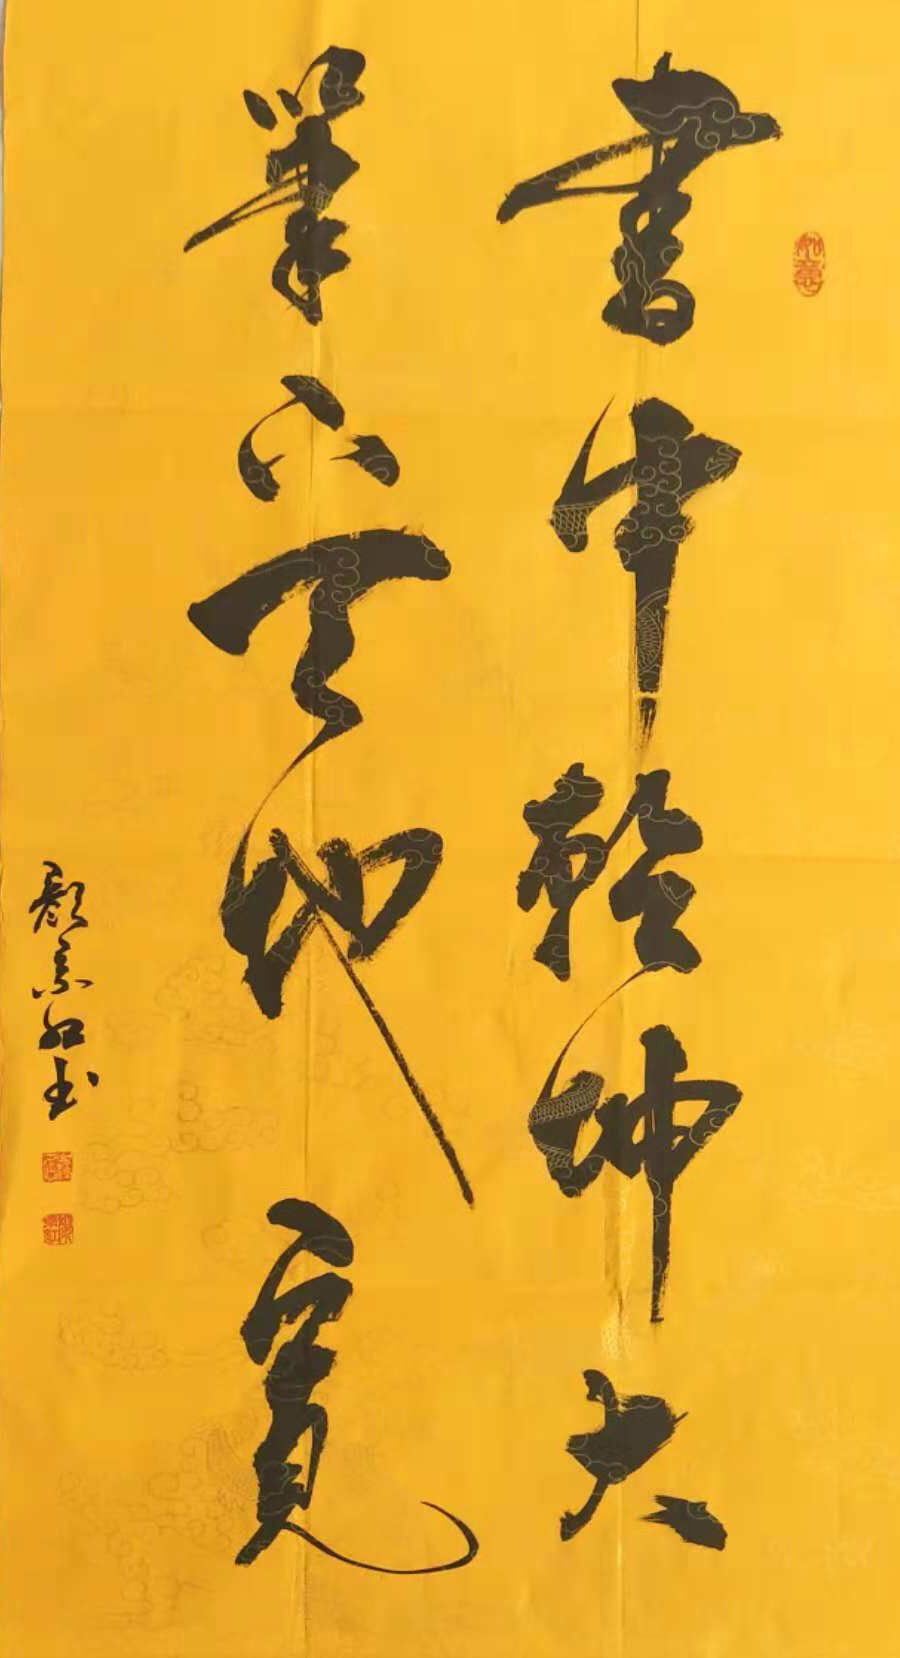 如意
書中乾坤大
筆下天地寬
景红书